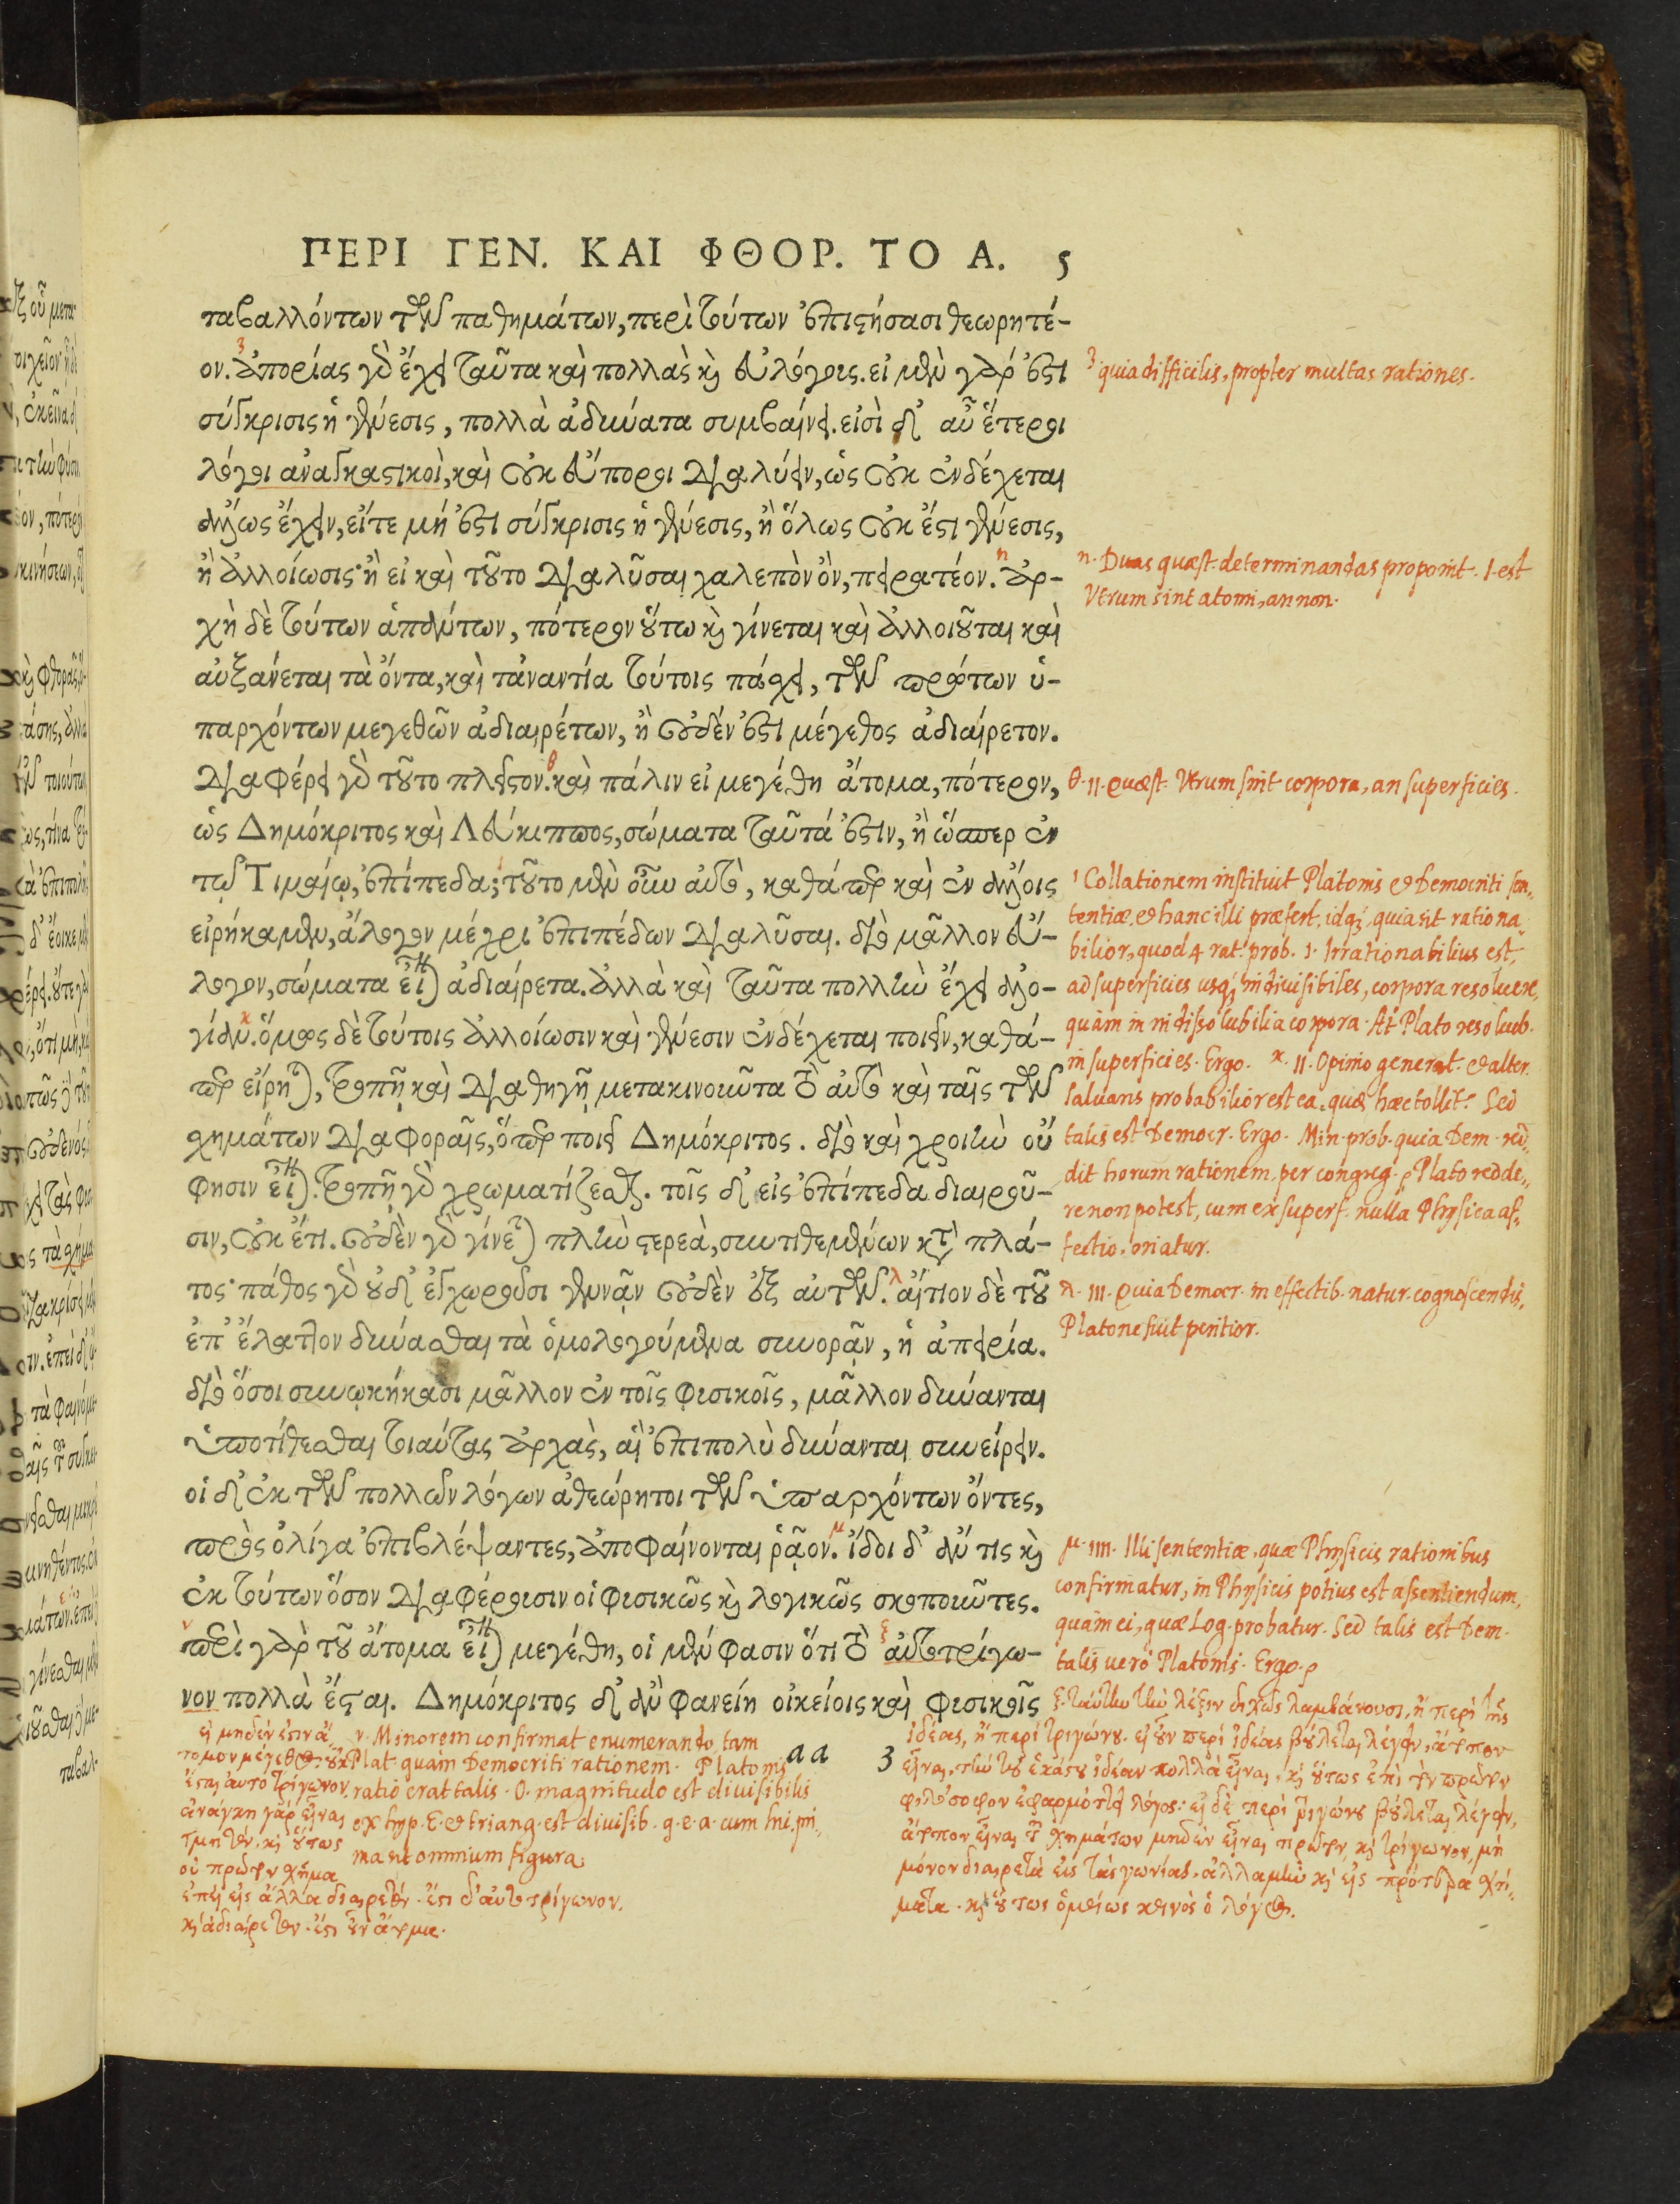 ΠΕΡΙ ΓΕΝ. ΚΑΙ ΦΘΟΡ. ΤΟ Α. 5
ταβαλλόντων τῶν παθημάτων, περὶ τούτων ἐπιστήσασι θεωρητέ-
ον. ἀπορίας γὰρ ἔχει ταῦτα καὶ πολλὰς καὶ εὐλόγους. εἰ μὲν γάρ ἐστι
σύγκρισις ἡ γένεσις, πολλὰ ἀδύνατα συμβαίνει. εἰσὶ δ' αὖ ἕτεροι
λόγοι ἀναγκαστικοὶ, καὶ οὐκ εὔποροι διαλύειν, ὡς οὐκ ἐνδέχεται
ἄλλως ἔχειν, εἴτε μή ἐστι σύγκρισις ἡ γένεσις, ἢ ὅλως οὐκ ἔστι γένεσις,
ἢ ἀλλοίωσις· ἢ εἰ καὶ τοῦτο διαλῦσαι χαλεπὸν ὂν, πειρατέον. ἀρ-
χὴ δὲ τούτων ἁπάντων, πότερον οὕτω καὶ γίνεται καὶ ἀλλοιοῦται καὶ
αὐξάνεται τὰ ὄντα, καὶ τἀναντία τούτοις πάσχει, τῶν πρώτων ὑ-
παρχόντων μεγεθῶν ἀδιαιρέτων, ἢ οὐδέν ἐστι μέγεθος ἀδιαίρετον.
διαφέρει γὰρ τοῦτο πλεῖστον. καὶ πάλιν εἰ μεγέθη ἄτομα, πότερον,
ὡς Δημόκριτος καὶ Λεύκιππος, σώματα ταῦτά ἐστιν, ἢ ὥσπερ ἐν
τῷ Τιμαίῳ, ἐπίπεδα; τοῦτο μὲν οὖν αὐτὸ, καθάπερ καὶ ἐν ἄλλοις
εἰρήκαμεν, ἄλογον μέχρι ἐπιπέδων διαλῦσαι. διὸ μᾶλλον εὔ-
λογον, σώματα εἶναι ἀδιαίρετα. ἀλλὰ καὶ ταῦτα πολλὴν ἔχει ἀλο-
γίαν. ὅμως δὲ τούτοις ἀλλοίωσιν καὶ γένεσιν ἐνδέχεται ποιεῖν, καθά-
περ εἴρηται, τροπῇ καὶ διαθηγῇ μετακινοῦντα τὸ αὐτὸ καὶ ταῖς τῶν
σχημάτων διαφοραῖς, ὅπερ ποιεῖ Δημόκριτος. διὸ καὶ χροιὴν οὔ
φησιν εἶναι. τροπῇ γὰρ χρωματίζεσθαι. τοῖς δ' εἰς ἐπίπεδα διαιροῦ-
σιν, οὐκ ἔτι. οὐδὲν γὰρ γίνεται πλὴν στερεὰ, συντιθεμένων κατὰ πλά-
τος· πάθος γὰρ οὐδ' ἐγχωροῦσι γεννᾶν οὐδὲν ἐξ αὐτῶν. αἴτιον δὲ τοῦ
ἐπ' ἔλαττον δύνασθαι τὰ ὁμολογούμενα συνορᾶν, ἡ ἀπειρία.
διὸ ὅσοι συνῳκήκασι μᾶλλον ἐν τοῖς φυσικοῖς, μᾶλλον δύνανται
ὑποτίθεσθαι τοιαύτας ἀρχὰς, αἳ ἐπιπολὺ δύνανται συνείρειν.
οἱ δ' ἐκ τῶν πολλῶν λόγων ἀθεώρητοι τῶν ὑπαρχόντων ὄντες,
πρὸς ὀλίγα ἐπιβλέψαντες, ἀποφαίνονται ῥᾷον. ἴδοι δ' ἄν τις καὶ
ἐκ τούτων ὅσον διαφέρουσιν οἱ φυσικῶς καὶ λογικῶς σκοποῦντες.
περὶ γὰρ τοῦ ἄτομα εἶναι μεγέθη, οἱ μέν φασιν ὅτι τὸ αὐτοτρίγω-
νον πολλὰ ἔσται. Δημόκριτος δ' ἂν φανείη οἰκείοις καὶ φυσικοῖς
aa 3
ταβαλ-
3 quia difficilis, propter multas rationes.
η. Duas quæst. determinandas proponit. I. est
Utrum sint atomi, an non.
θ. II. quæst. Utrum sint corpora, an superficies.
ι Collationem instituit Platonis et Democriti sen-
tentiæ, et hanc illi præfert, idq; quia sit rationa-
bilior, quod 4 rat. prob. 1. Irrationabilius est,
ad superficies usq; indiuisibiles, corpora resoluere,
quàm in indissolubilia corpora. At Plato resolueb.
in superficies. Ergo. κ. II. Opinio generat. et alter.
saluans probabilior est ea, quæ hæc tollit. Sed
talis est Democr. Ergo. Min. prob. quia Dem. red-
dit horum rationem, per congreg. Plato redde-
re non potest, cum ex superf. nulla Physica af-
fectio oriatur.
λ. III. Quia Democr. in effectib. natur. cognoscendis,
Platone fuit peritior.
μ. IIII. Illi sententiæ, quæ Physicis rationibus
confirmatur, in Physicis potius est assentiendum,
quàm ei, quæ Log. probatur. Sed talis est Dem.
talis uerò Platonis. Ergo.
ξ. ταύτην τὴν λέξιν διχῶς λαμβάνουσι, ἢ περὶ τῆς
ἰδέας, ἢ περὶ τριγώνου. εἰ οὖν περὶ ἰδέας βούλεται λέγειν, ἄτομον
εἶναι, τὴν τοῦ ἑκάστου ἰδέαν πολλὰ εἶναι, καὶ οὕτως ἐπὶ τὸν πρῶτον
φιλόσοφον ἐφαρμόττει λόγος: εἰ δὲ περὶ τριγώνου βούλεται λέγειν,
ἄτομον εἶναι τῶν σχημάτων μηδὲν εἶναι πρῶτον, καὶ τρίγωνον, μὴ
μόνον διαιρετὰ εἰς τὰς γωνίας, ἀλλὰ μὴν καὶ εἰς πρότερα σχή-
ματα. καὶ οὕτως ὁμοίως κοινὸς ὁ λόγος.
ν. Minorem confirmat enumerando, tam
Plat. quàm Democriti rationem. Platonis
ratio erat talis. O. magnitudo est diuisibilis
ex hyp. E. et triang. est diuisib. g. e. a. cum sui pri-
ma sit omnium figura.
εἰ μηδέν ἐστιν ἄ-
τομον μέγεθος. οὐκ
ἔσται αὐτοτρίγωνον.
ἀνάγκη γὰρ εἶναι
τμητὸν. καὶ οὕτως
οὐ πρῶτον σχῆμα
ἐπεὶ εἰς ἄλλα διαιρετόν. ἔστι δ' αὐτοτρίγωνον.
καὶ ἀδιαίρετον. ἔστι οὖν ἄτομα.